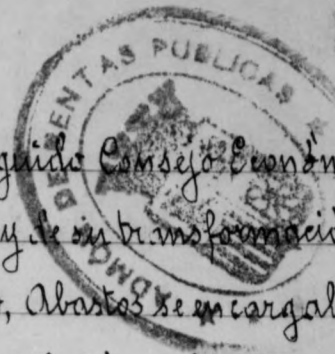 DE RENTAS PUBLICAS
ADMÓN
guido Consejo Económ
y de su transformació
, Abastos se encargab